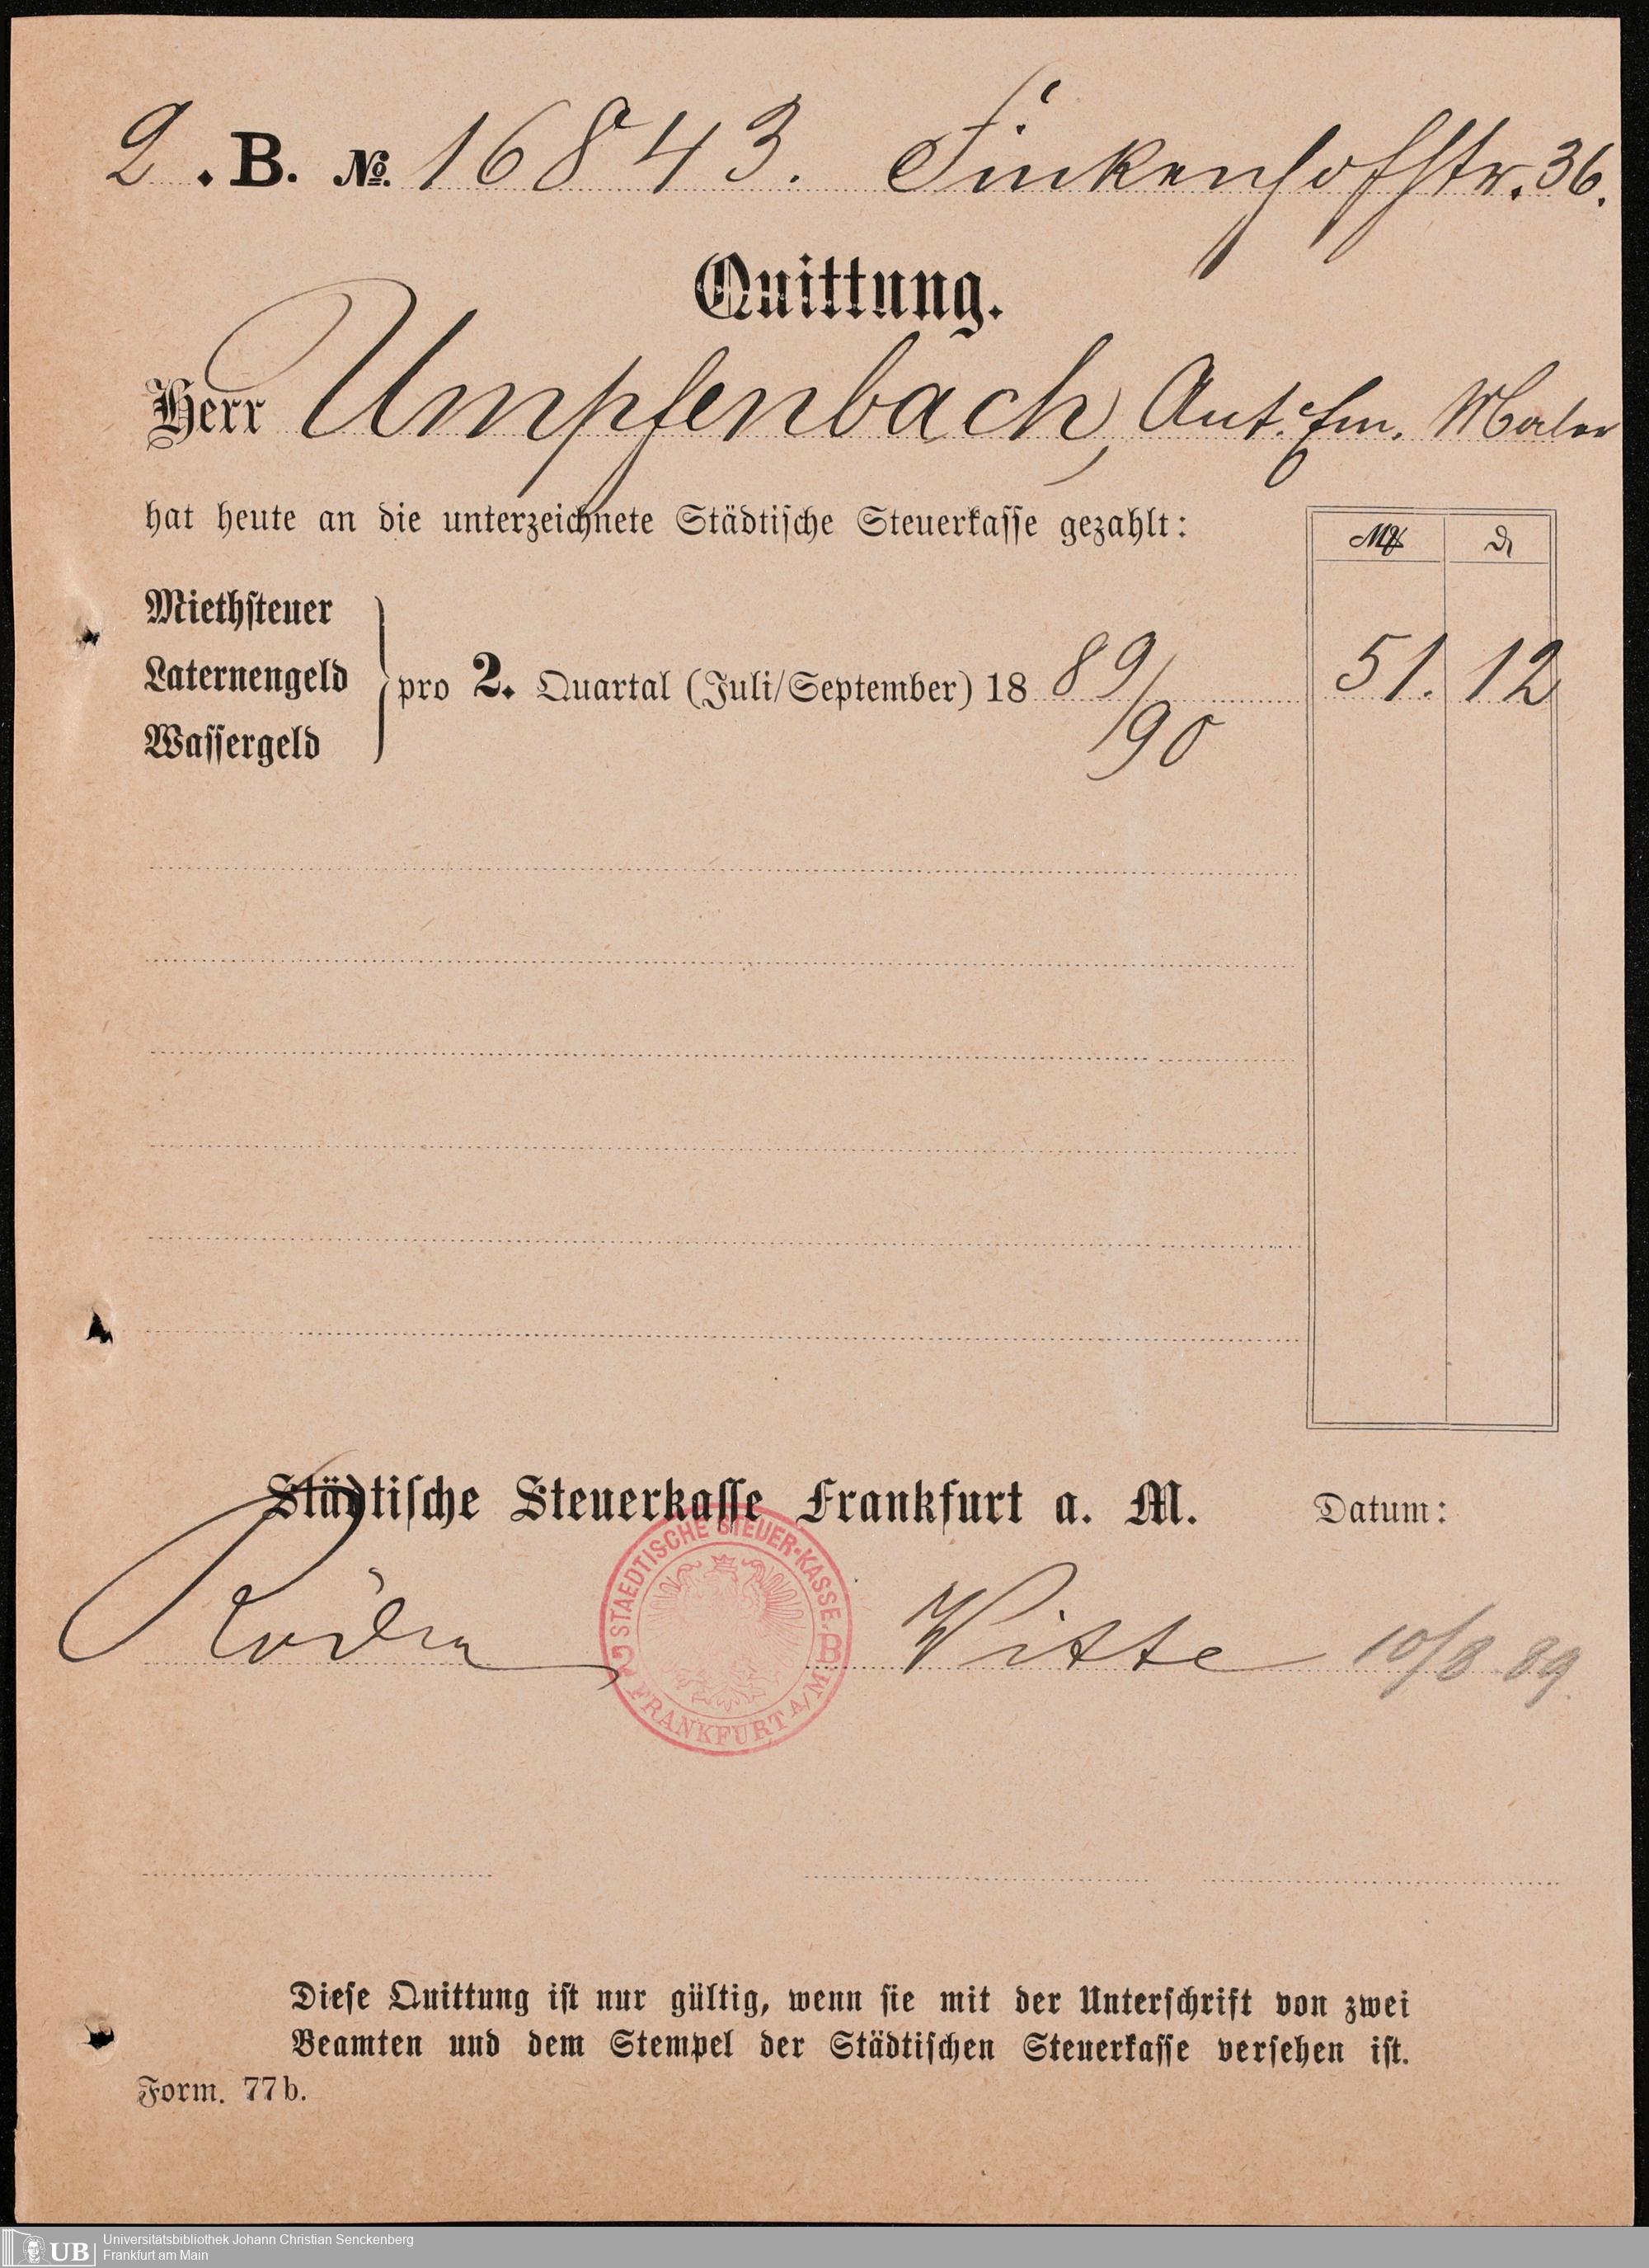 2. B. No. 16843. Finkenhofstr. 36.
Quittung.
Herr Umpfenbach, Ant. Em. Maler
hat heute an die unterzeichnete Städtische Steuerkasse gezahlt:
M ₰
Miethsteuer
Laternengeld
Wassergeld
pro 2. Quartal (Juli/September) 18 89/90 51. 12
Städtische Steuerkasse Frankfurt a. M. Datum:
Witte 10/8 89.
STAEDTISCHE STEUER-KASSE B
FRANKFURT A/M
Diese Quittung ist nur gültig, wenn sie mit der Unterschrift von zwei
Beamten und dem Stempel der Städtischen Steuerkasse versehen ist.
Form. 77b.
UB Universitätsbibliothek Johann Christian Senckenberg
Frankfurt am Main